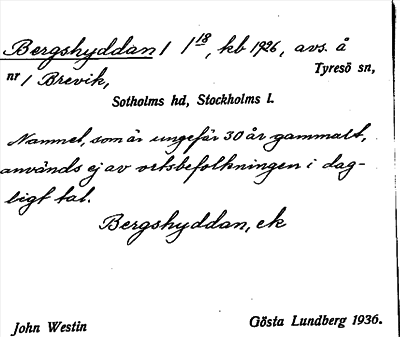 Bergshyddan 1 1¹⁸, kb 1926, avs. å
nr 1 Brevik,
Tyresö sn,
Sotholms hd, Stockholms l.
Namnet, som är ungefär 30 år gammalt,
används ej av ortsbefolkningen i dag-
ligt tal.
Bergshyddan, ek
John Westin
Gösta Lundberg 1936.